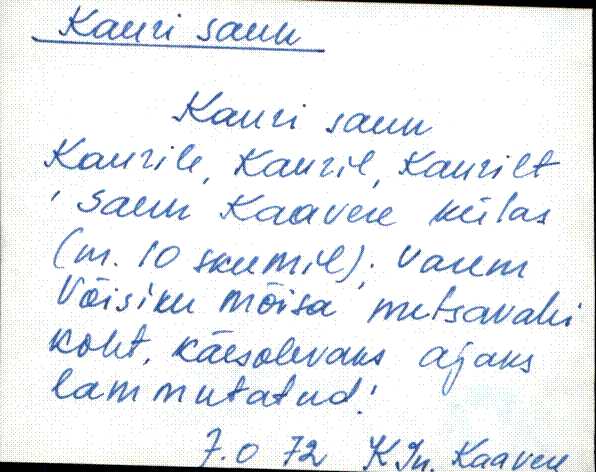 Kauri saun
Kauri saun
Kaurile, Kauril, Kaurilt
, saun Kaavere külas
(m. 10 skeemil); varem
Võisiku mõisa metsavahi
koht, käesolevaks ajaks
lammutatud.
7.0 72 K Jn. Kaavere